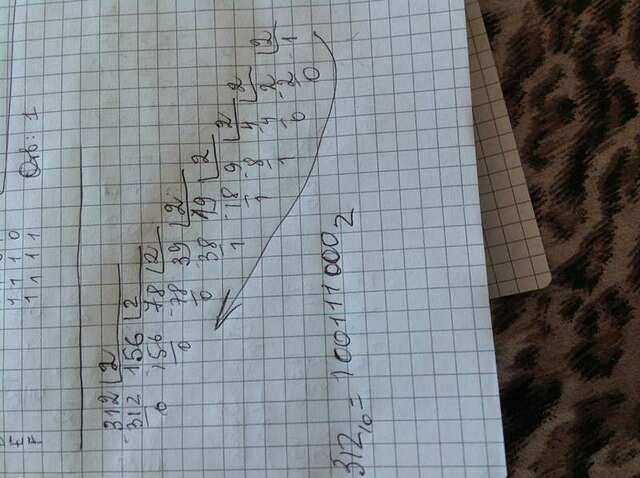 Отв: 1
1 1 1 0
1 1 1 1
312 | 2
312 156 | 2
0 156 78 | 2
0 78 39 | 2
0 38 19 | 2
1 18 9 | 2
1 8 4 | 2
1 4 2 | 2
0 2 1
0
312₁₀ = 100111000₂